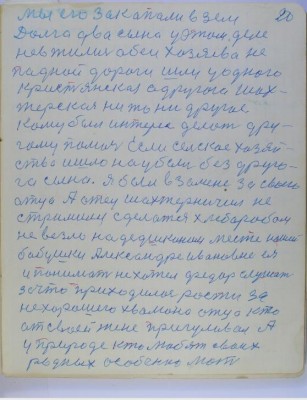 20
мы его Закапали в зем
Долга два сына у этом деле
не вжились обеи Хозяева не
падной дороги шли у одного
кристянская а другога Шах-
терская ни то ни другое.
Кому был интерес делат дру-
гому помоч Если селское хозяй
ство ишло на убыли без друго-
га сына. Я был в Замене За свого
отца А отец шахтерничил не
стримился сделатся хлибаробом
не везло на дедушкином месте нашей
бабушки Александре ивановне ея
и понимат не хотел федар слушат
за что приходилос рости За
не хорошего хвамоно отца кто
от свцей жене пригуливал А
у природе кто любят своих
родных особенно мат